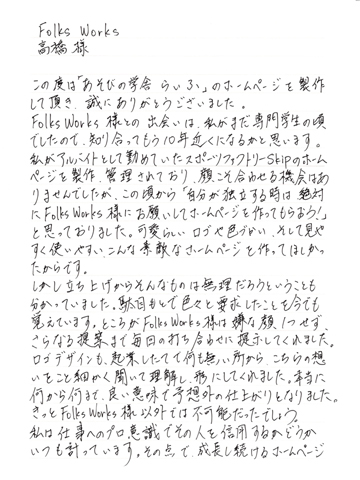 Folks Works
高橋 様
この度は「あそびの学舎 らいふ」のホームページを製作
して頂き、誠にありがとうございました。
Folks Works 様との出会いは、私がまだ専門学生の頃
でしたので、知り合ってもう10年近くになるかと思います。
私がアルバイトとして勤めていたスポーツファクトリーSkipのホーム
ページを製作、管理されており、顔こそ合わせる機会はあ
りませんでしたが、この頃から「自分が独立する時は絶対
にFolks Works 様にお願いしてホームページを作ってもらおう！」
と思っておりました。可愛らしいロゴや色づかい、そして見や
すく使いやすい、こんな素敵なホームページを作ってほしかっ
たからです。
しかし立ち上げからそんなものは無理だろうということも
分かっていました。駄目もとで色々と要求したことを今でも
覚えています。ところがFolks Works 様は嫌な顔1つせず、
さらなる提案まで毎回の打ち合わせに提示してくれました。
ロゴデザインも、起業したてで何も無い所から、こちらの想
いをこと細かく聞いて理解し、形にしてくれました。本当に
何から何まで、良い意味で予想外の仕上がりとなりました。
きっとFolks Works 様以外では不可能だったでしょう。
私は仕事へのプロ意識でその人を信用するかどうか
いつも計っています。その点で、成長し続けるホームページ